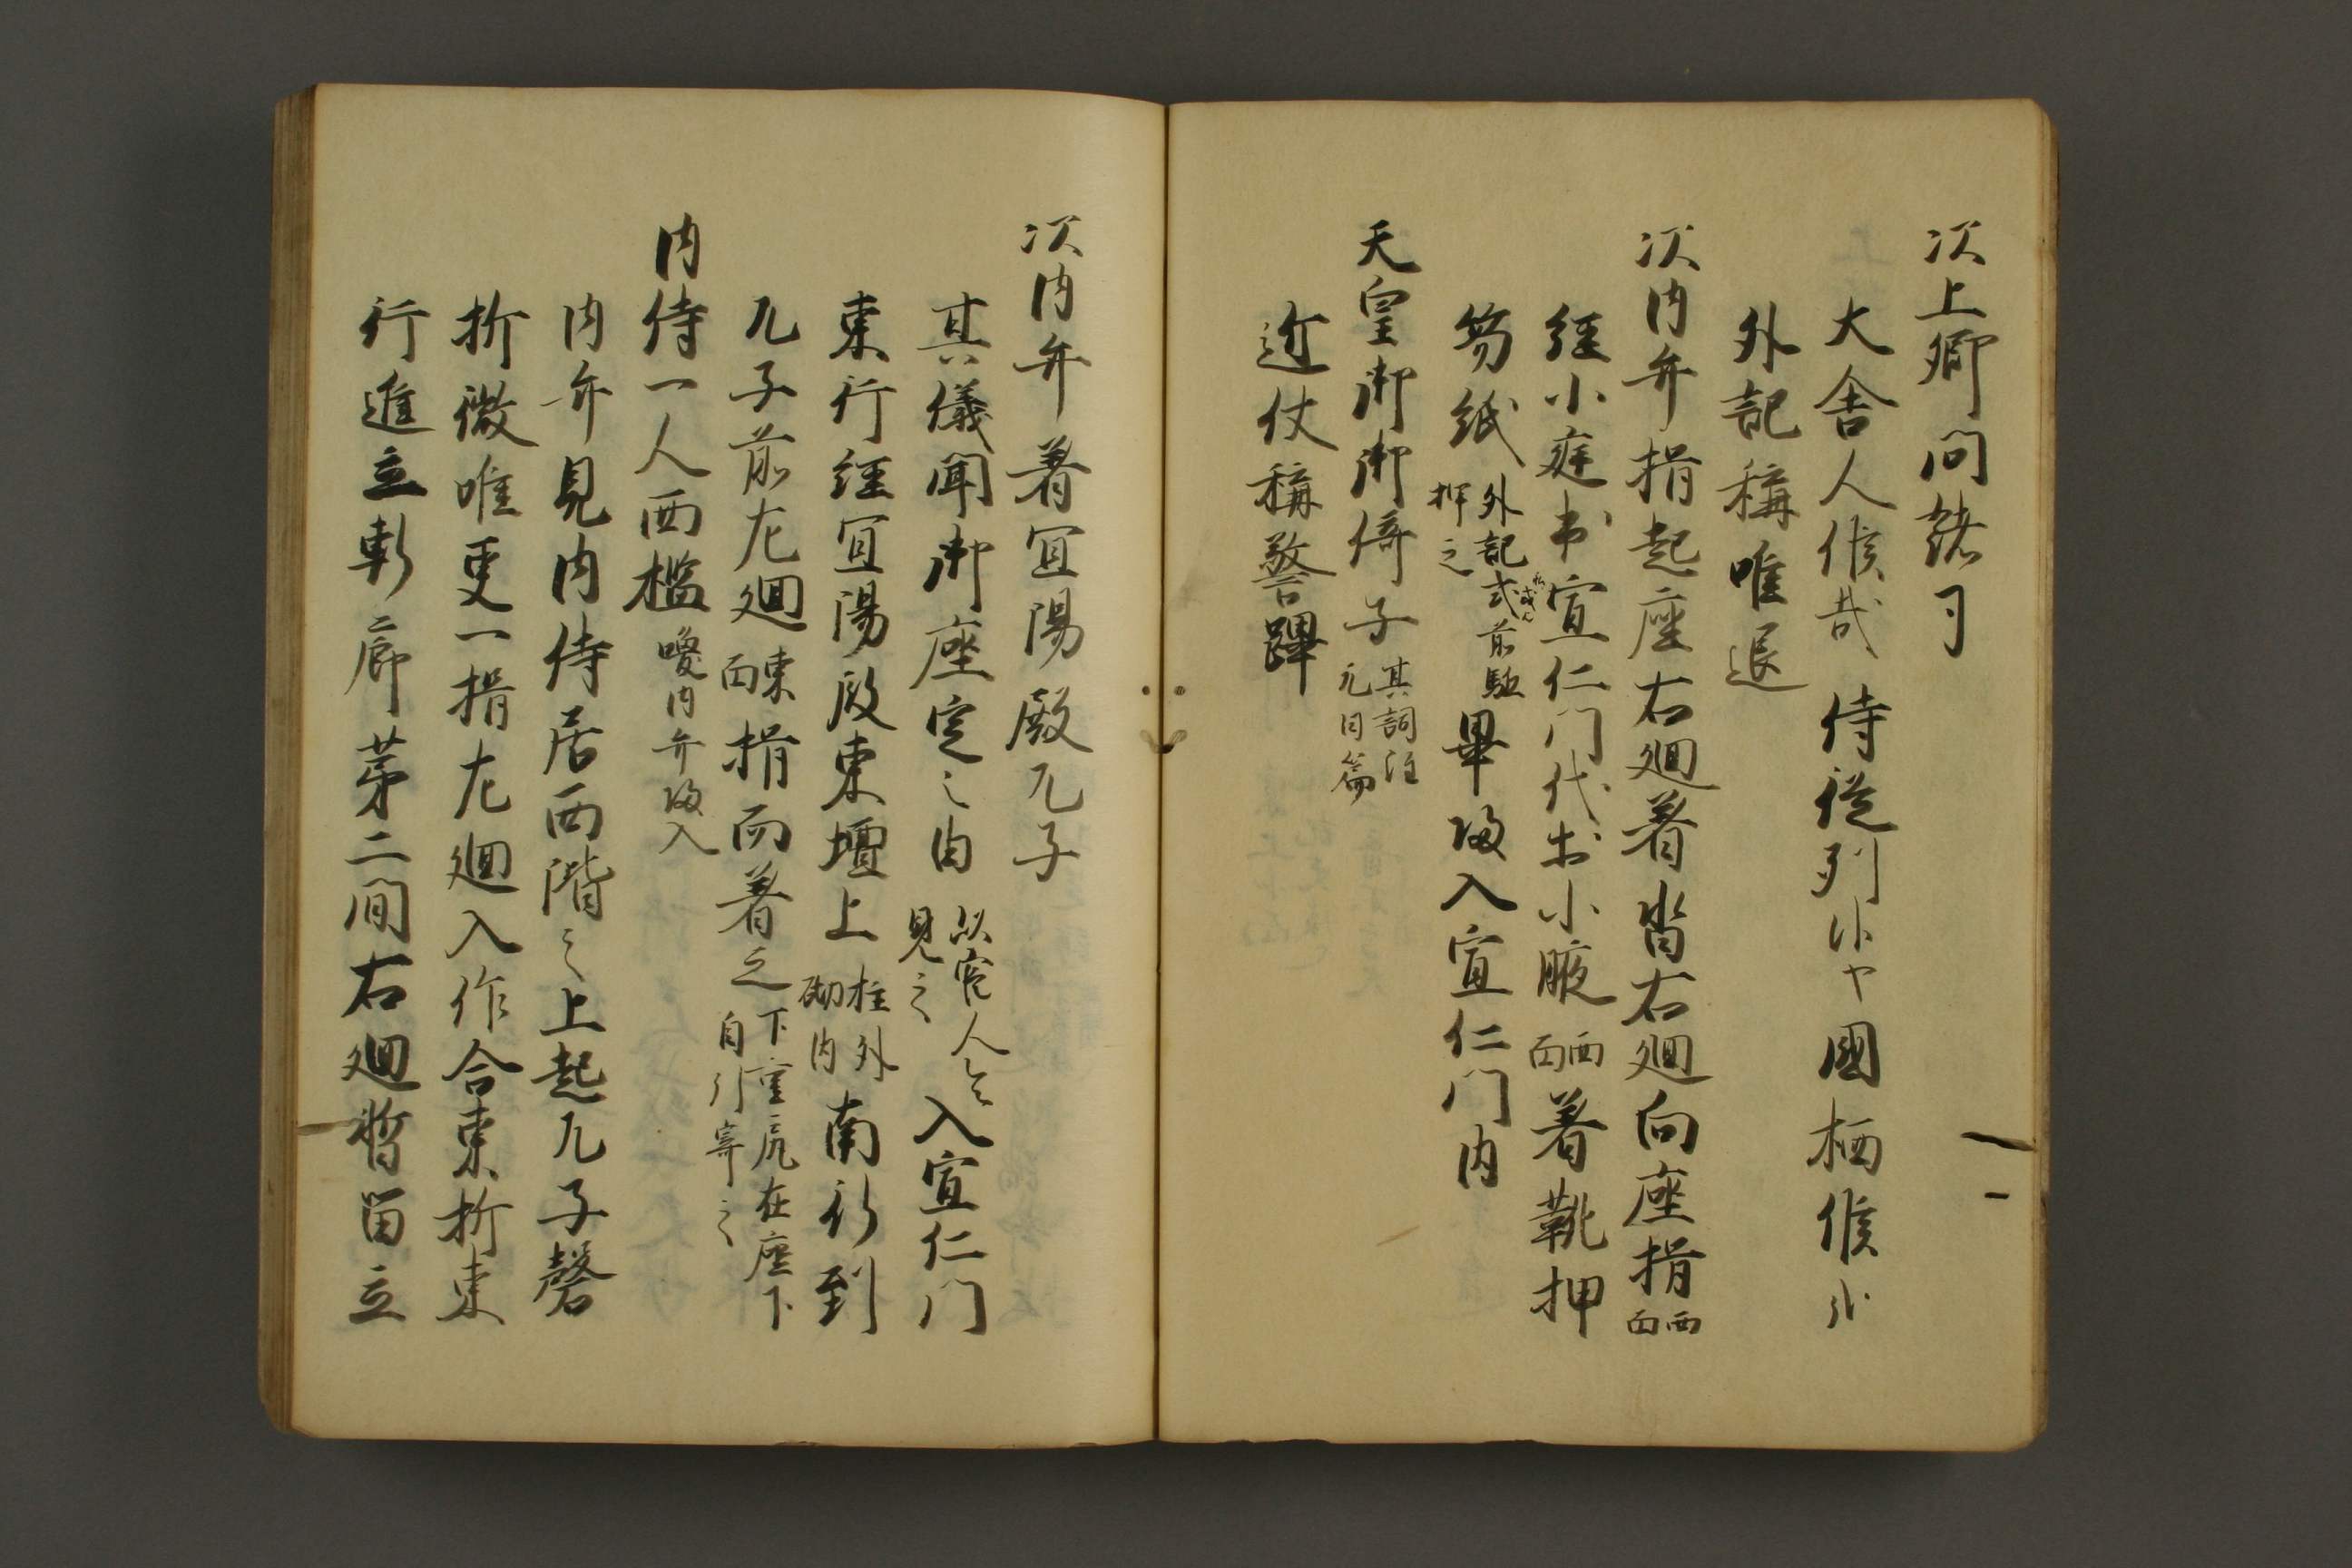 次上卿問諸司
大舎人候哉 侍従列ハヤ 國栖候ハ
外記稱唯退
次内弁揖起座右廻着沓右廻向座揖西面
経小庭出宣仁門代於小腋西面着靴押
笏紙外記式前駈押之畢帰入宣仁門内
天皇御御倚子其詞注元日篇
近仗稱警蹕
次内弁着冝陽殿兀子
其儀聞御座定之由以官人令見之入宣仁門
東行経冝陽殿東壇上柱外砌内南行到
兀子前左廻東面揖而着之下重尻在座下自引寄之
内侍一人西檻喚内弁帰入
内弁見内侍居西階之上起兀子磬
折微唯更一揖左廻入作合東折東
行進立軒廊第二間右廻暫留立